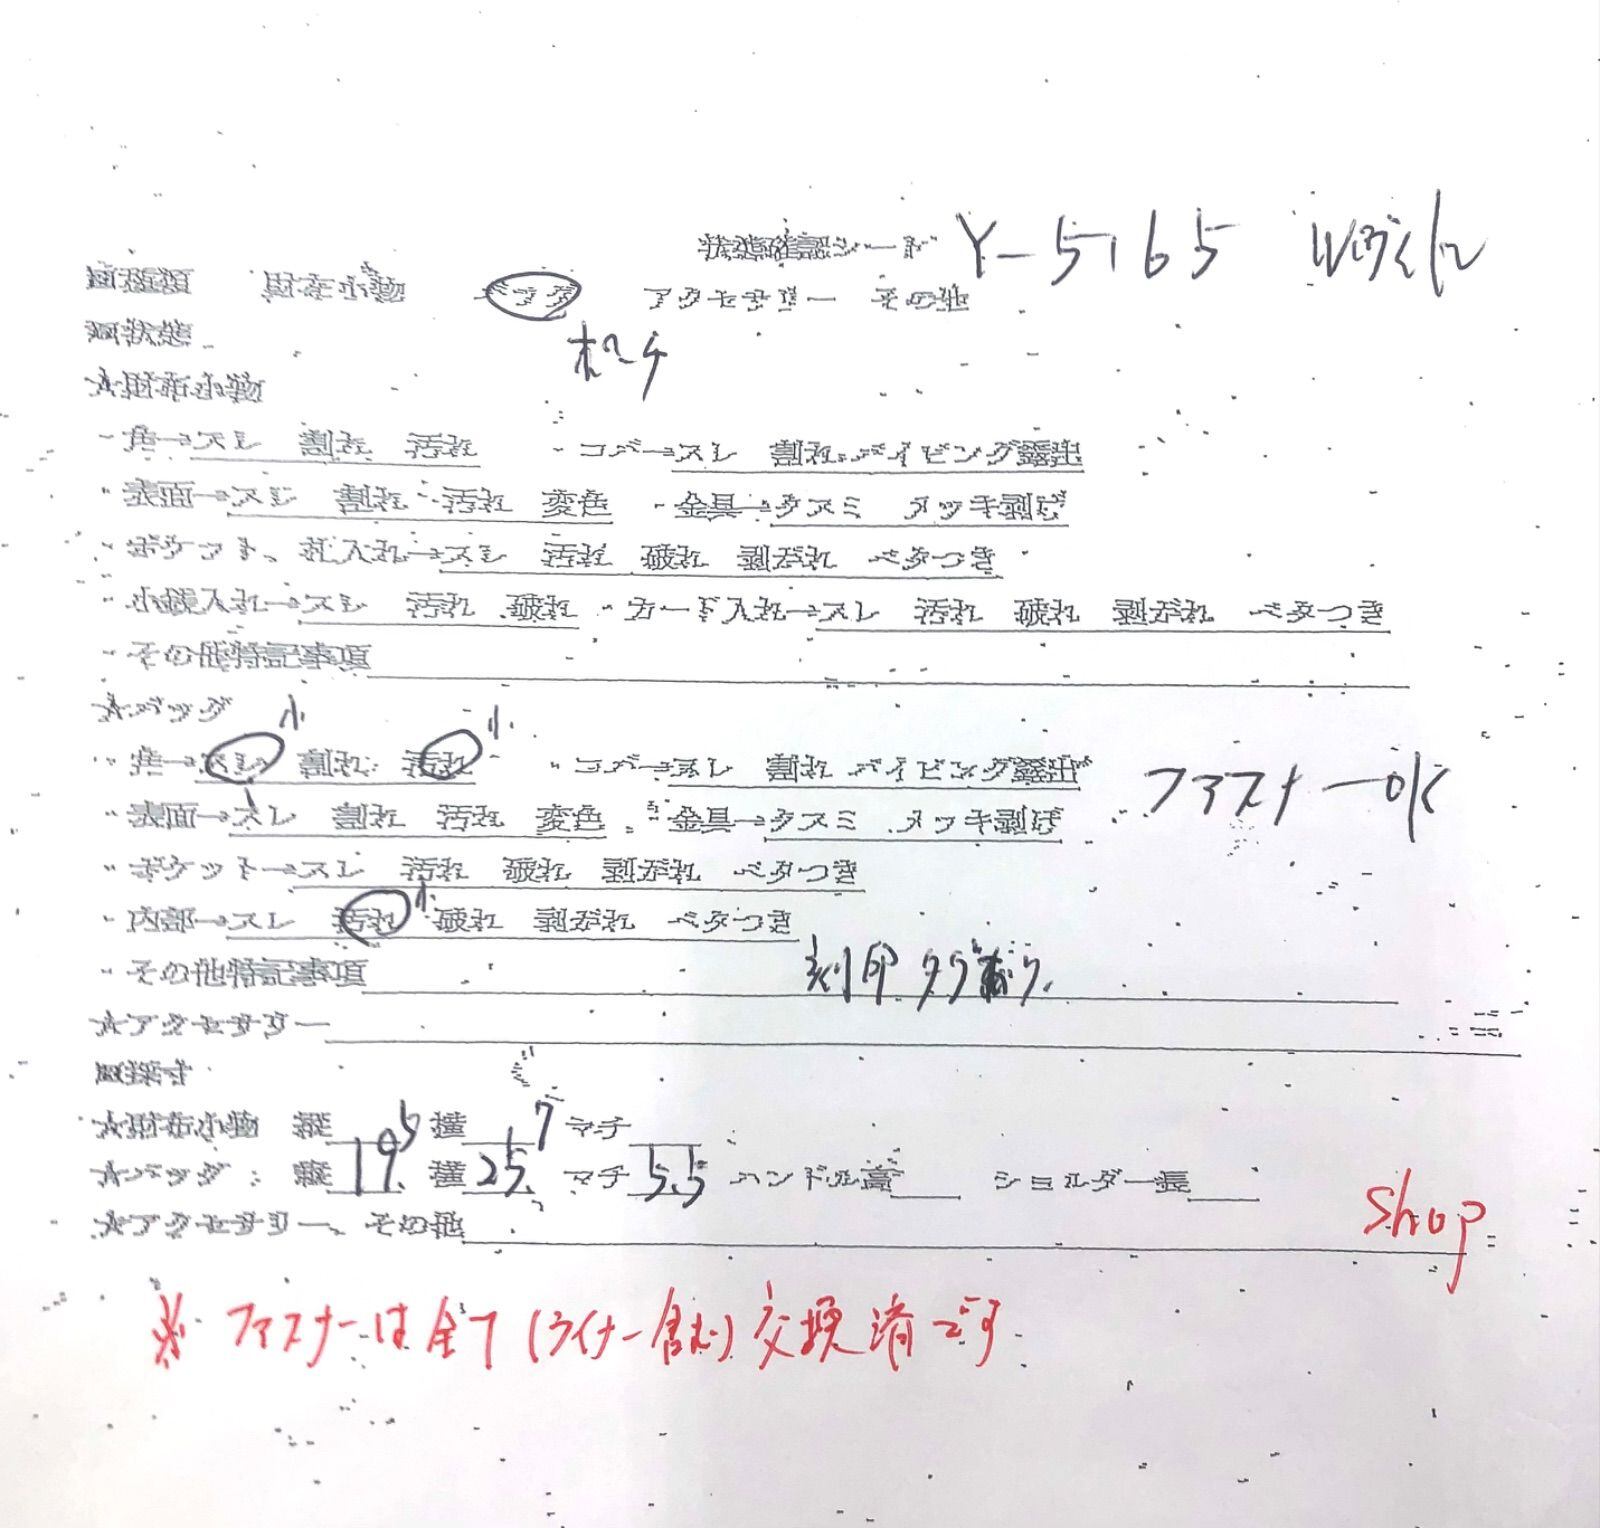 状態確認シート Y-5165
▣種類 財布小物 バッグ アクセサリー その他
ポーチ
▣状態
★財布小物
・角→スレ 割れ 汚れ ・コバ→スレ 割れ パイピング露出
・表面→スレ 割れ 汚れ 変色 ・金具→クスミ メッキ剥げ
・ポケット、札入れ→スレ 汚れ 破れ 剥がれ ベタつき
・小銭入れ→スレ 汚れ 破れ ・カード入れ→スレ 汚れ 破れ 剥がれ ベタつき
・その他特記事項
★バッグ
小 小
・角→スレ 割れ 汚れ ・コバ→スレ 割れ パイピング露出
ファスナーOK
・表面→スレ 割れ 汚れ 変色 ・金具→クスミ メッキ剥げ
・ポケット→スレ 汚れ 破れ 剥がれ ベタつき
・内部→スレ 汚れ 小 破れ 剥がれ ベタつき
・その他特記事項 刻印
★アクセサリー
▣採寸
★財布小物 縦 横 マチ
★バッグ 縦 19.5 横 25.7 マチ 5.5 ハンドル高 ショルダー長
★アクセサリー、その他
shop
※ファスナーは全て(ライナー含む)交換済です